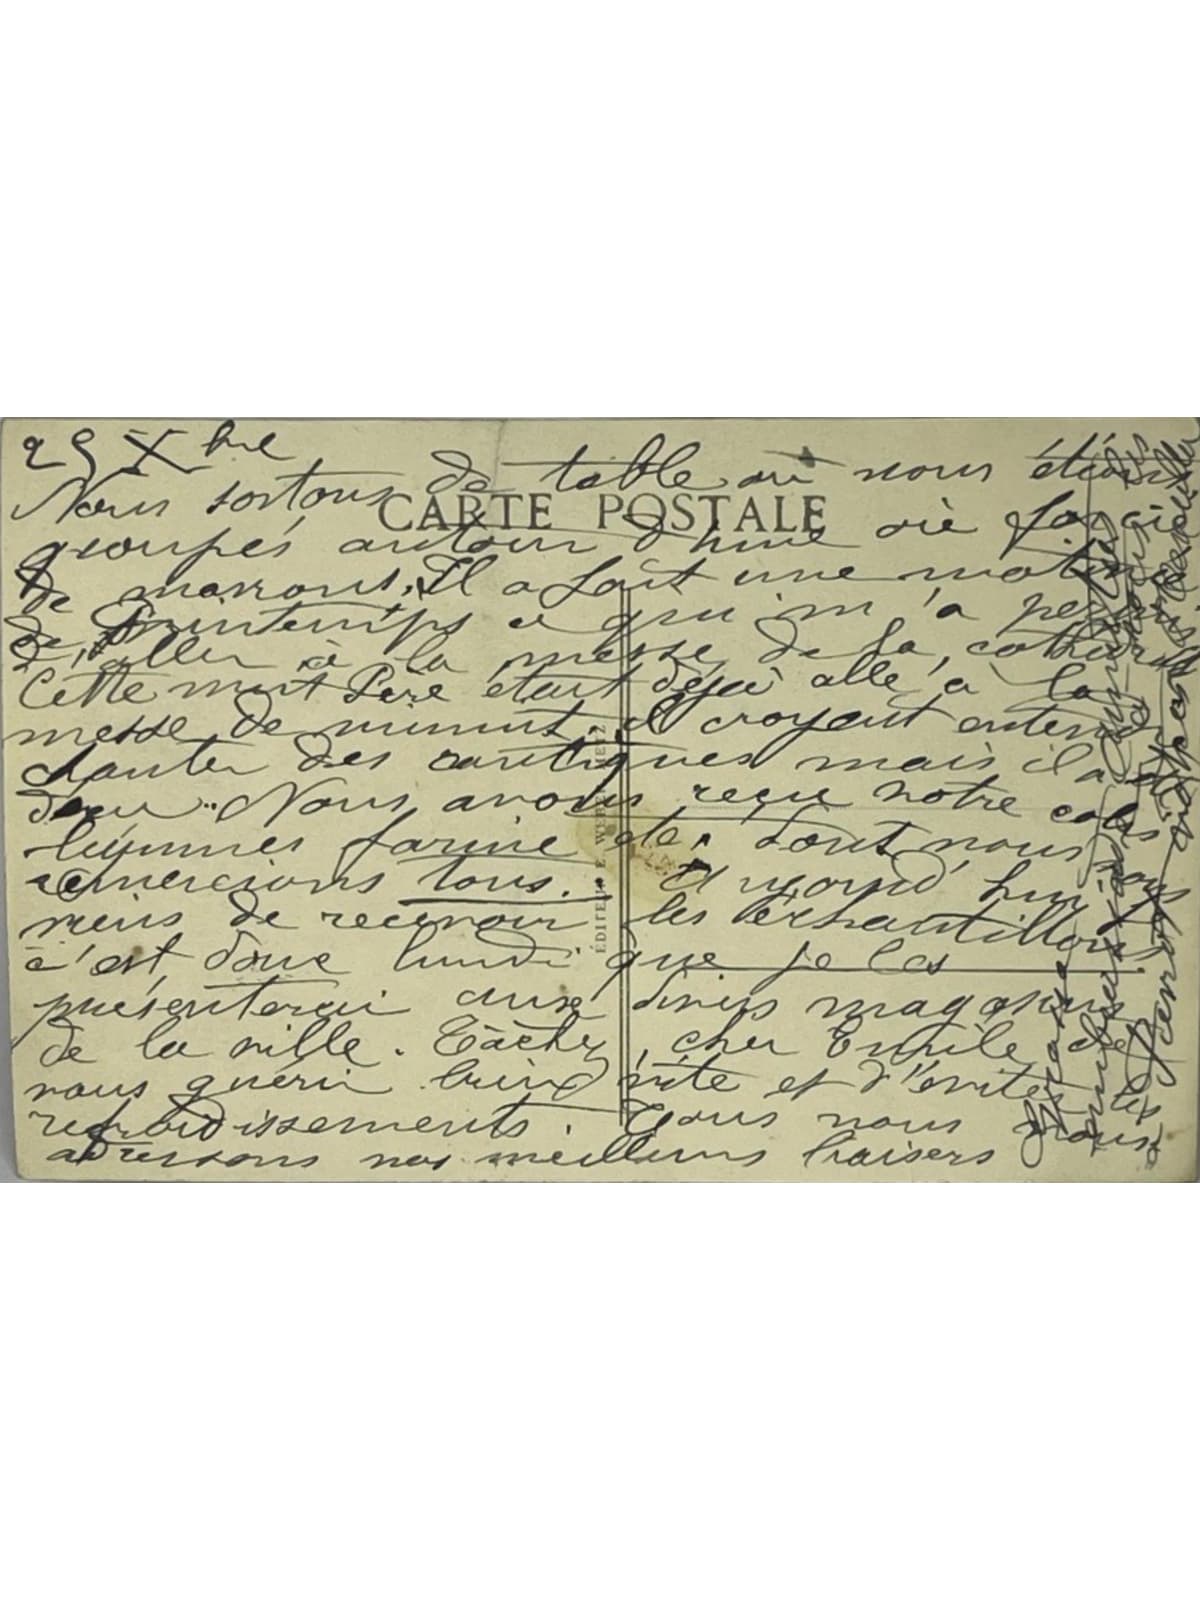 25 Xbre
Nous sortons de table où nous étions
CARTE POSTALE
groupés autour d'une oie farcie
de marrons. Il a fait une matinée
de Printemps ce qui m'a permis
d'aller à la messe de la cathédrale
Cette nuit Père était déjà allé à la
messe de minuit, il croyait entendre
chanter des cantiques mais il a été
déçu.. Nous avons reçu notre colis
légumes farine etc. dont nous vous
remercions tous. Aujourd'hui nous
venons de recevoir les échantillons
c'est donc lundi que je les
présenterai aux divers magasins
de la ville. Tâchez, cher Emile, de
vous guérir bien vite et d'éviter les
refroidissements. Tous nous vous
adressons nos meilleurs baisers
EDITEUR E. WEBER METZ